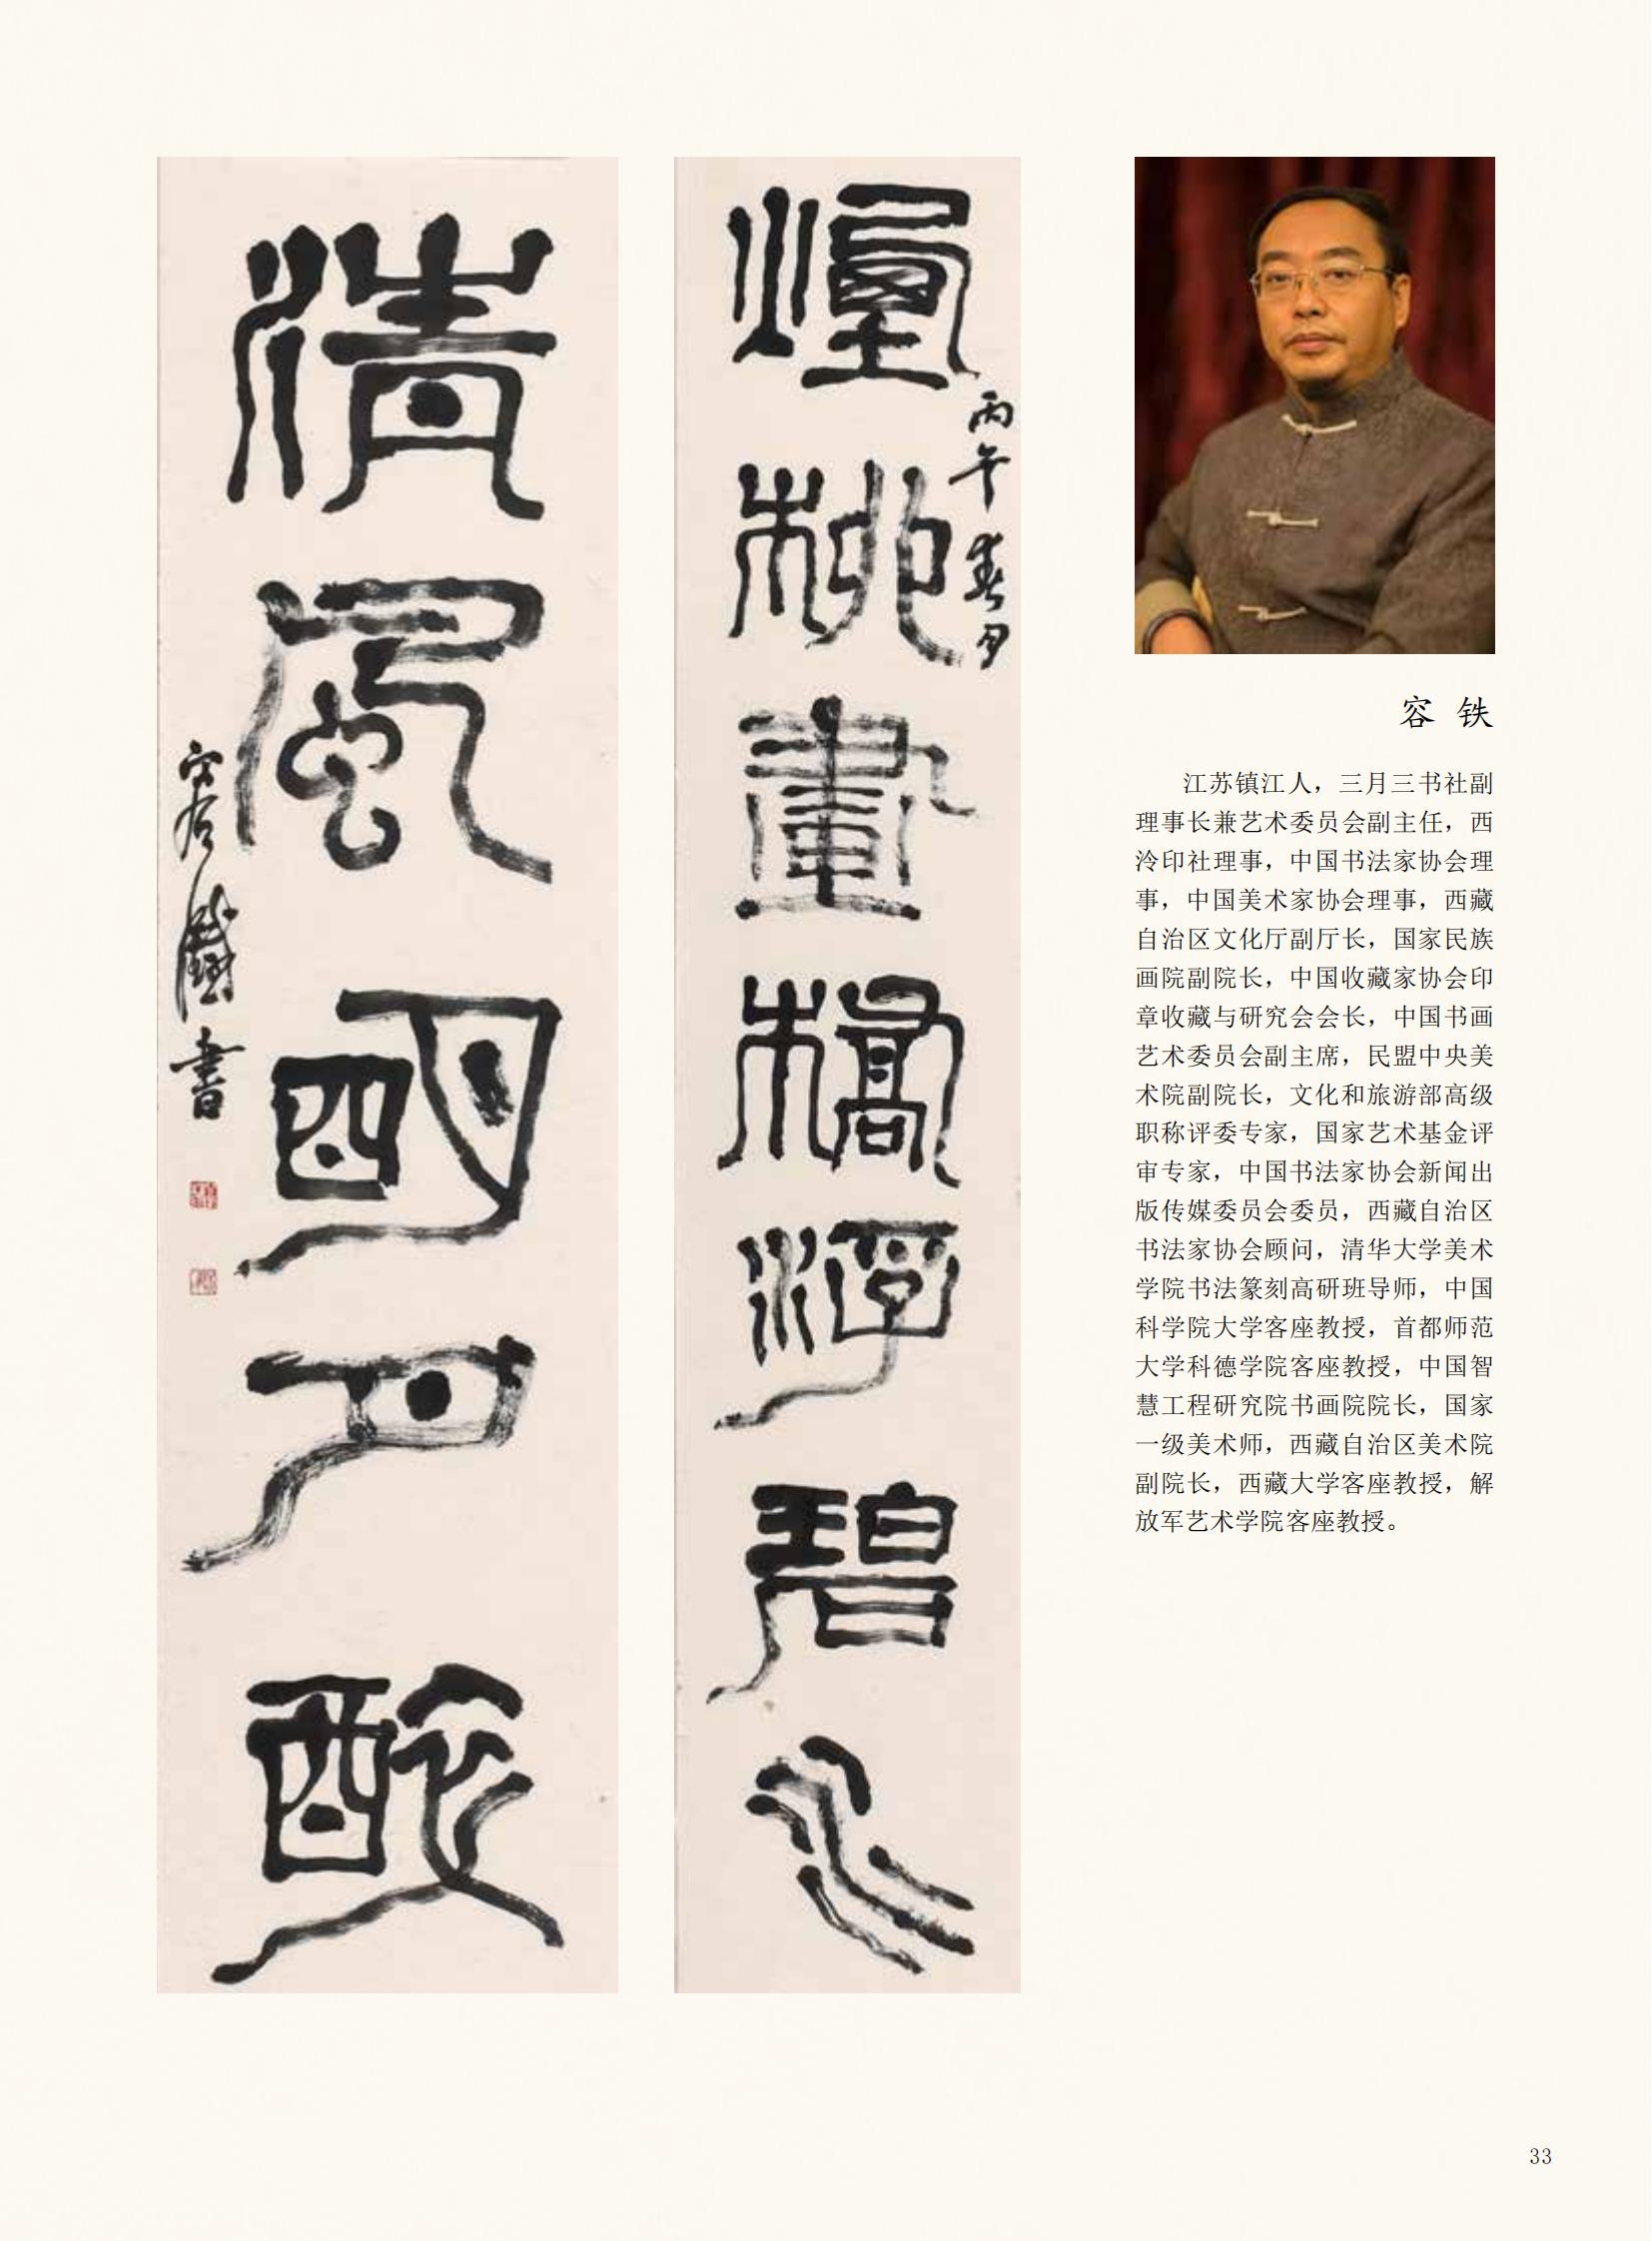 煙柳畫橋浮碧水
丙午春月
清風明月醉
容鐵書
容 铁
江苏镇江人，三月三书社副
理事长兼艺术委员会副主任，西
泠印社理事，中国书法家协会理
事，中国美术家协会理事，西藏
自治区文化厅副厅长，国家民族
画院副院长，中国收藏家协会印
章收藏与研究会会长，中国书画
艺术委员会副主席，民盟中央美
术院副院长，文化和旅游部高级
职称评委专家，国家艺术基金评
审专家，中国书法家协会新闻出
版传媒委员会委员，西藏自治区
书法家协会顾问，清华大学美术
学院书法篆刻高研班导师，中国
科学院大学客座教授，首都师范
大学科德学院客座教授，中国智
慧工程研究院书画院院长，国家
一级美术师，西藏自治区美术院
副院长，西藏大学客座教授，解
放军艺术学院客座教授。
33